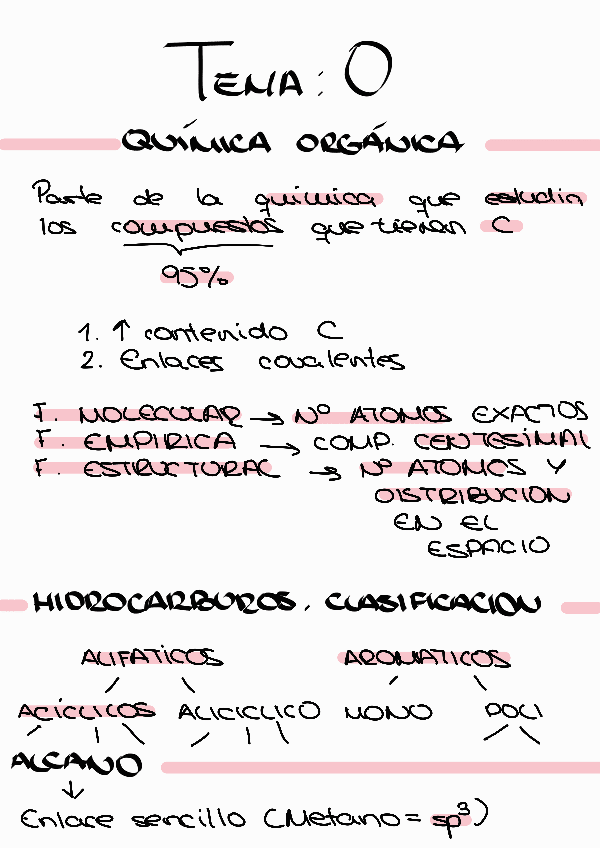 TEMA: 0
QUÍMICA ORGÁNICA
Parte de la química que estudia
los compuestos que tienen C
95%
1. ↑ contenido C
2. Enlaces covalentes
F. MOLECULAR → Nº ATOMOS EXACTOS
F. EMPIRICA → COMP. CENTESIMAL
F. ESTRUCTURAL → Nº ATOMOS Y
DISTRIBUCION
EN EL
ESPACIO
HIDROCARBUROS. CLASIFICACION
ALIFATICOS AROMATICOS
ACÍCLICOS ALICICLICO MONO POLI
ALCANO
↓
Enlace sencillo (Metano = sp³)